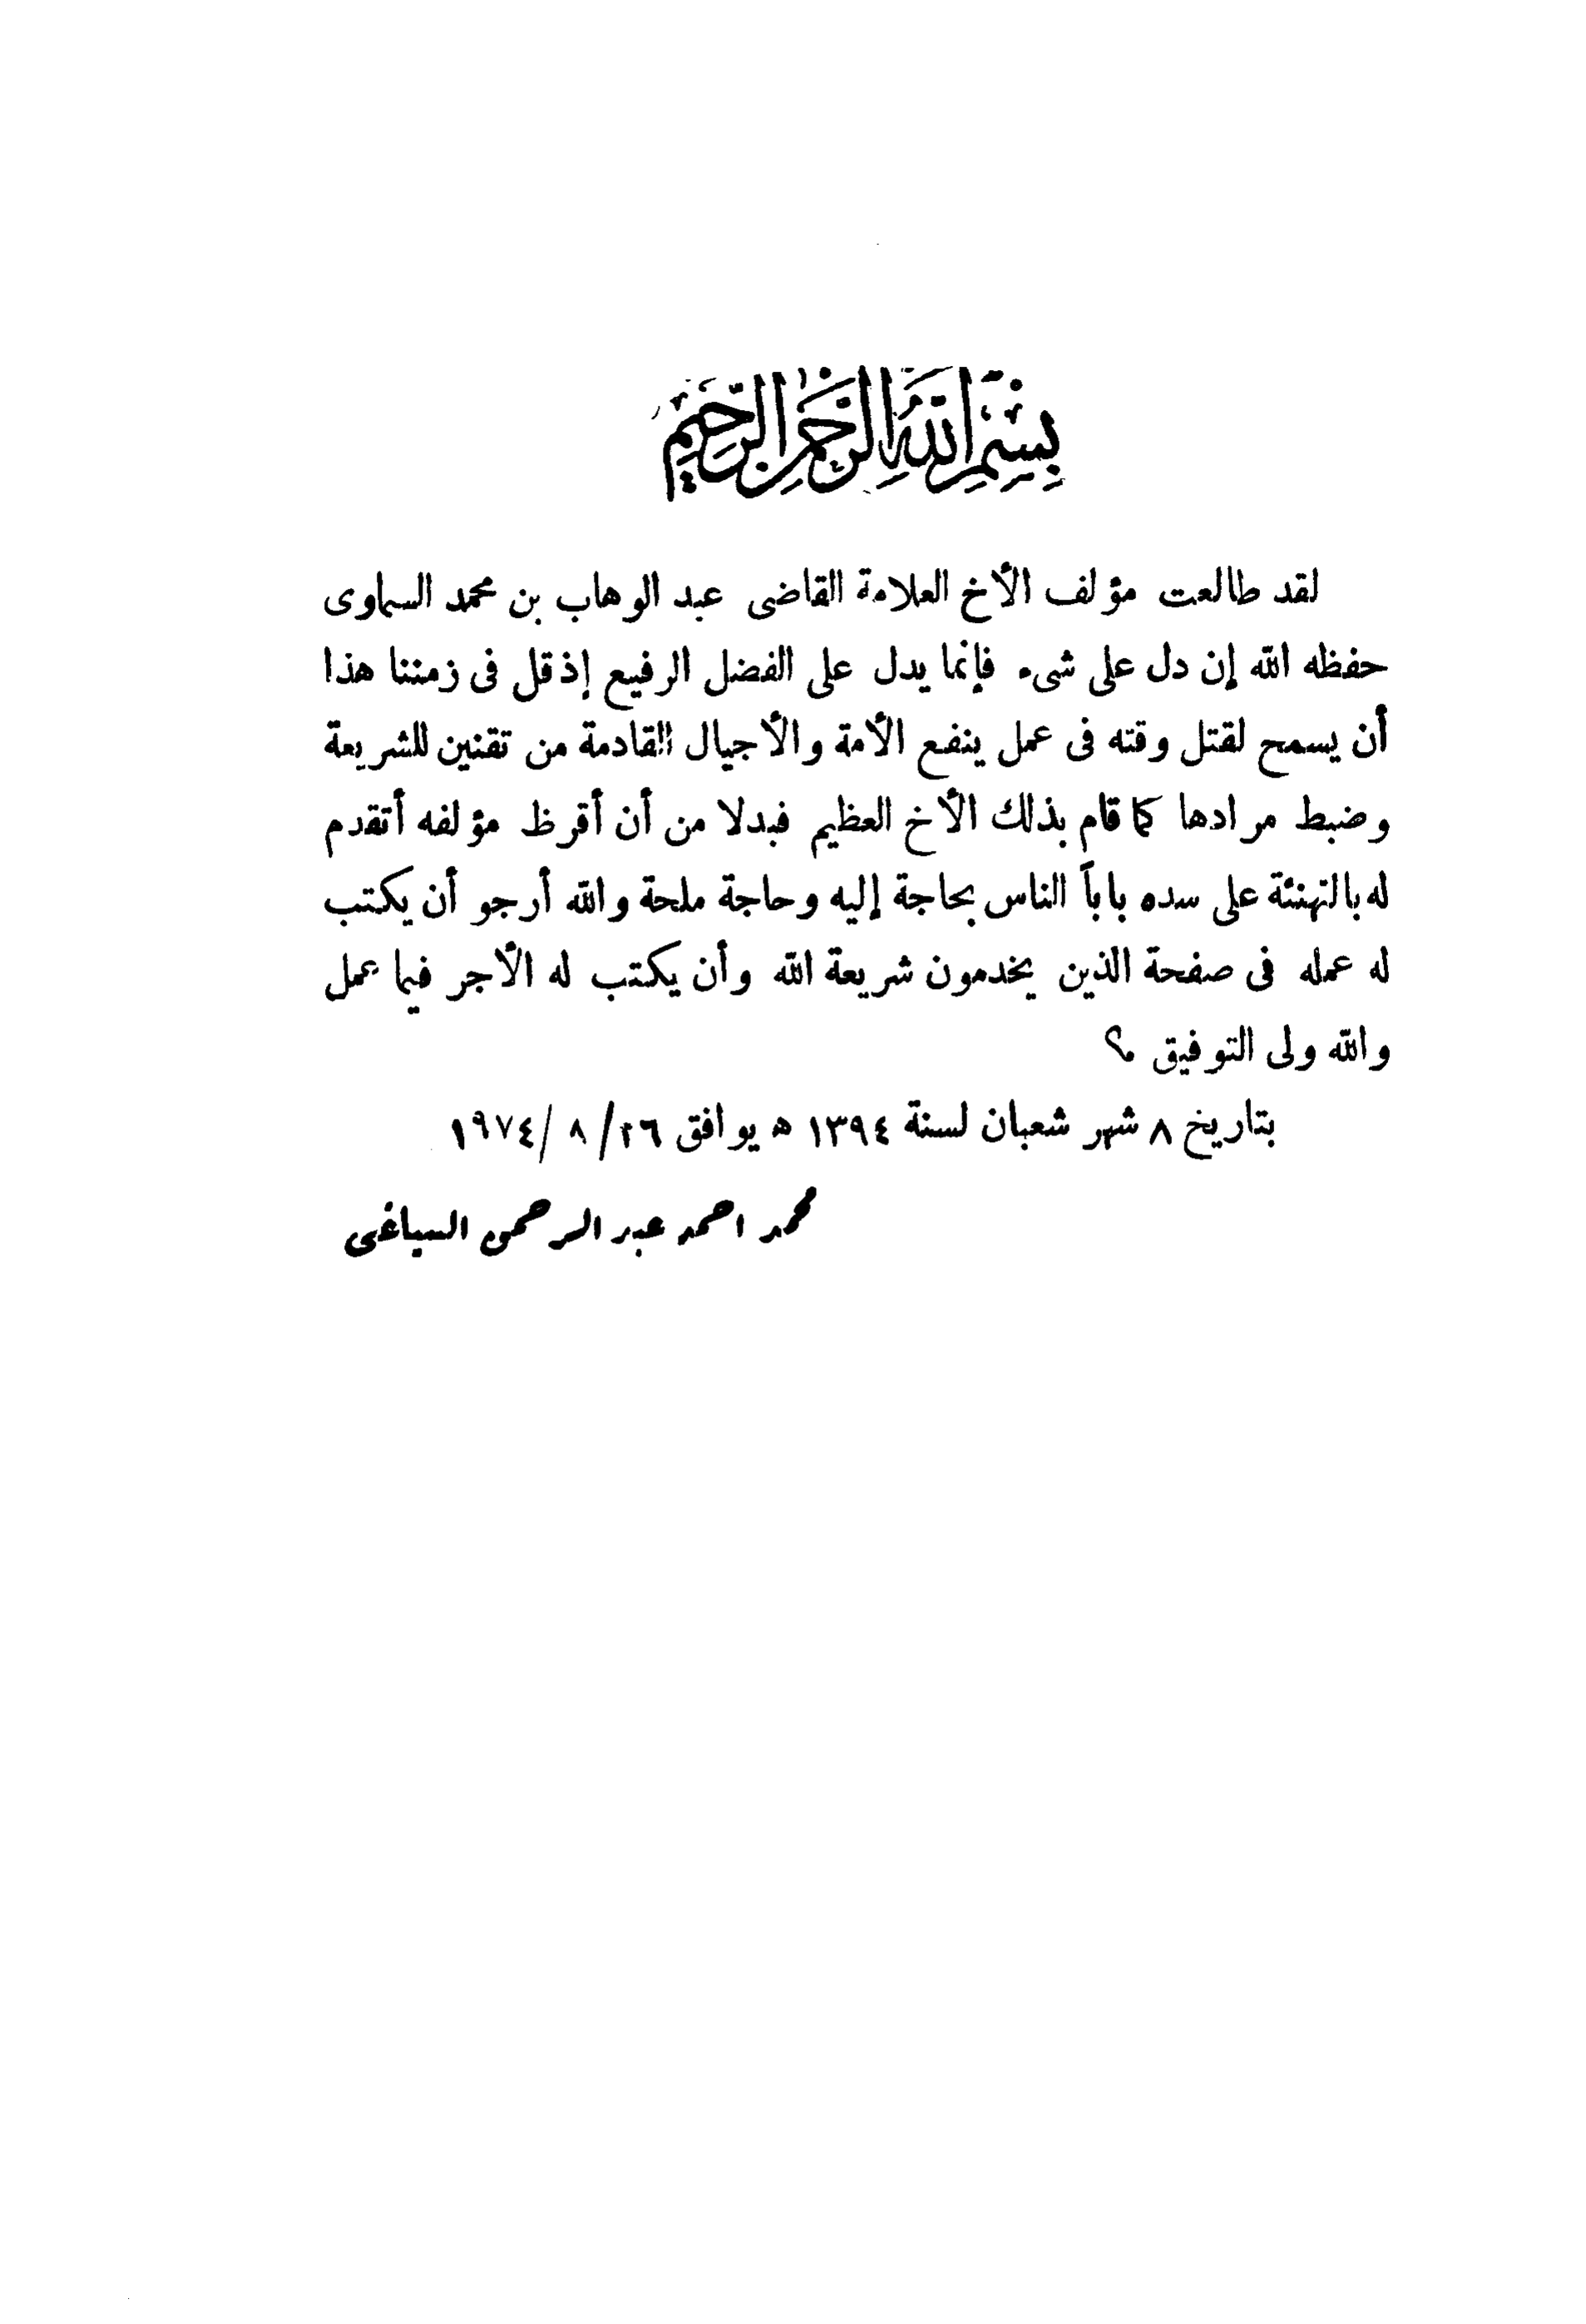 بسم الله الرحمن الرحيم
لقد طالعت مؤلف الأخ العلامة القاضى عبد الوهاب بن محمد السماوى
حفظه الله إن دل على شىء فإنما يدل على الفضل الرفيع إذ قل فى زمننا هذا
أن يسمح لقتل وقته فى عمل ينفع الأمة والأجيال القادمة من تقنين للشريعة
وضبط مرادها كما قام بذلك الأخ العظيم فبدلا من أن أقرظ مؤلفه أتقدم
له بالتهنئة على سده باباً الناس بحاجة إليه وحاجة ملحة والله أرجو أن يكتب
له عمله فى صفحة الذين يخدمون شريعة الله وأن يكتب له الأجر فيما عمل
والله ولى التوفيق م؟
بتاريخ ٨ شهر شعبان لسنة ١٣٩٤ ه يوافق ٢٦/ ٨ /١٩٧٤
محمد احمد عبد الرحمن السياغى